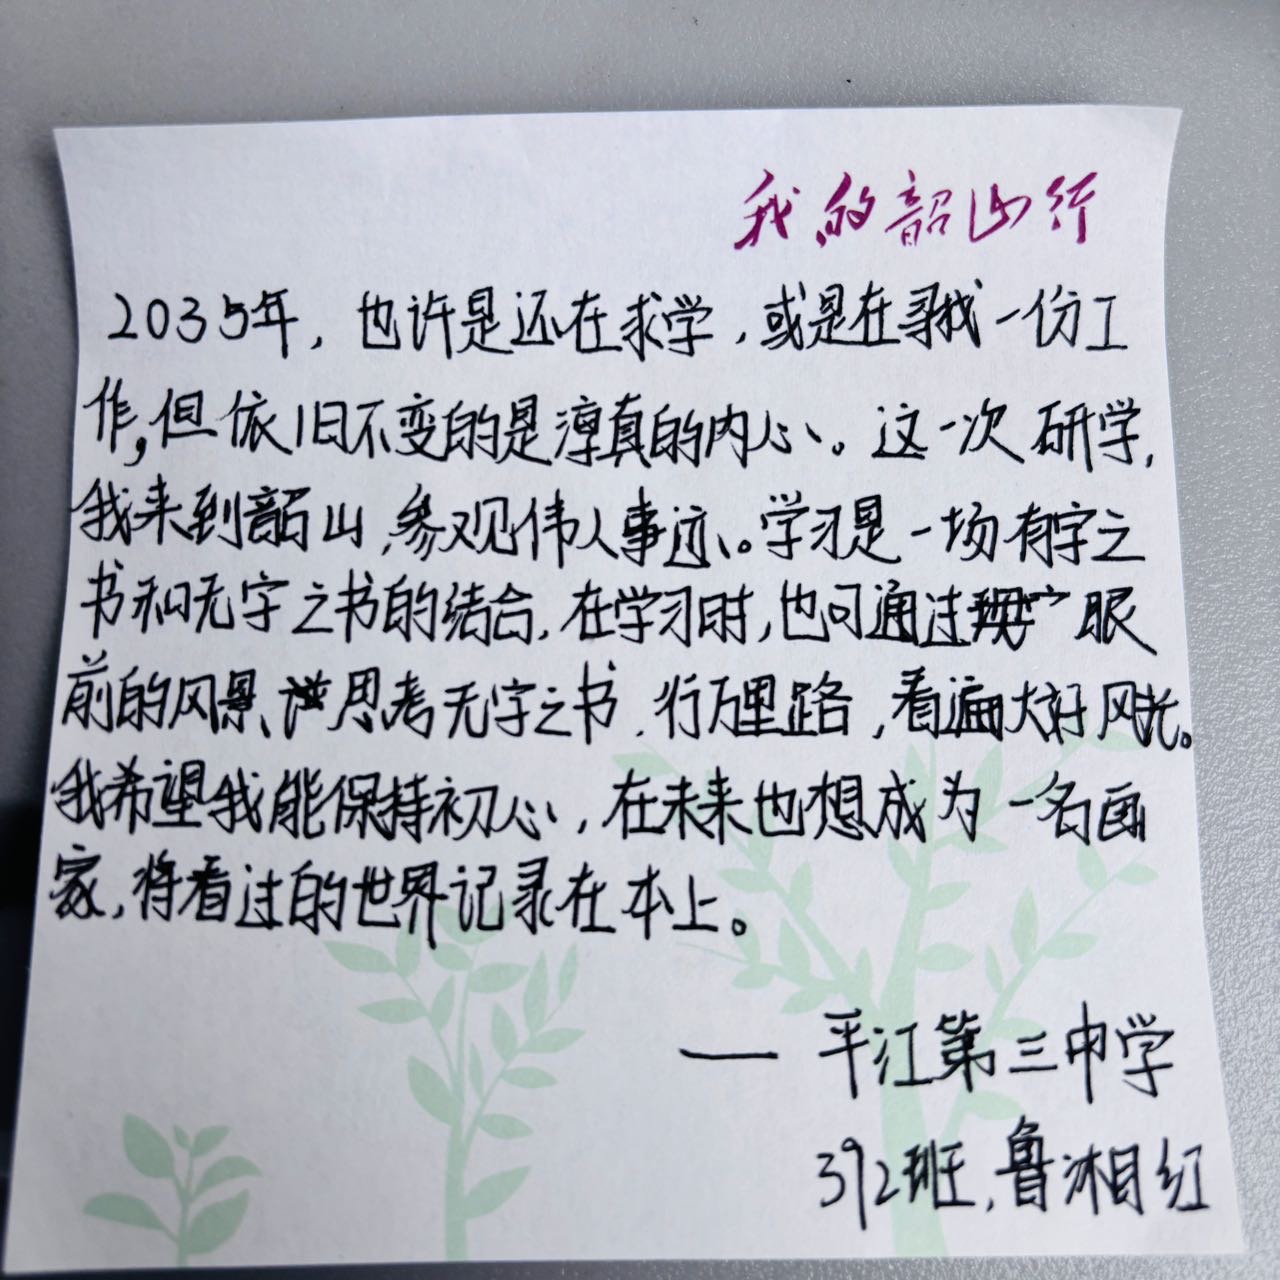 我的韶山行
2035年，也许是还在求学，或是在寻找一份工
作，但依旧不变的是淳真的内心。这一次研学，
我来到韶山，参观伟人事迹。学习是一场有字之
书和无字之书的结合，在学习时，也可通过眼
前的风景、思考无字之书，行万里路，看遍大好风光。
我希望我能保持初心，在未来也想成为一名画
家，将看过的世界记录在本上。
——平江第三中学
392班，鲁湘红